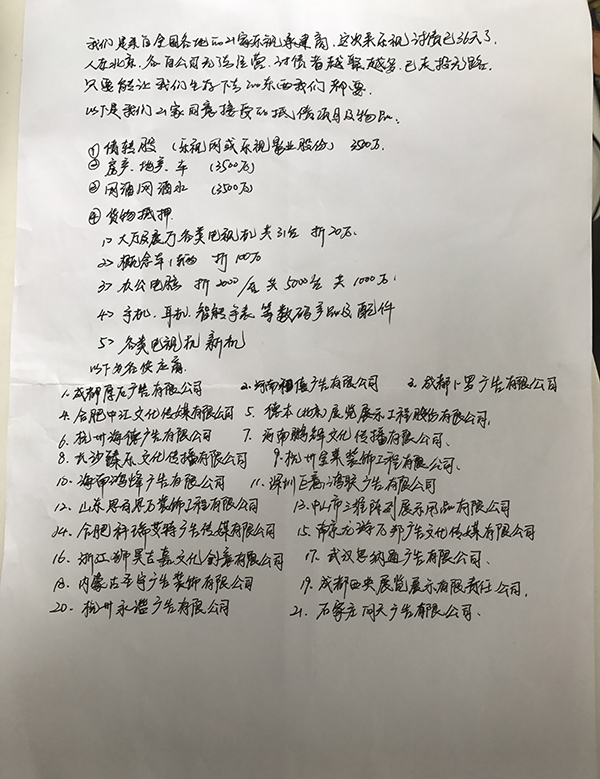 我们是来自全国各地的21家乐视亲果商,这次来乐视讨债已36天了,
人在北京,各自公司无法经营,讨债者越聚越多,已走投无路,
只要能让我们生存下去的东西我们都要.
以下是我们21家同意接受的抵债项目及物品:
①债转股 (乐视网或乐视影业股份) 3500万.
②房产、地产、车 (3500万)
③网酒网酒水 (3500万)
④货物抵押
1>大厅及展厅各类电视机 共31台 折20万.
2>概念车1辆 折100万
3>办公电脑 折2000/台 共5000台 共1000万.
4>手机、耳机、智能手表等数码产品及配件
5>各类电视机新机
以下为各供应商.
1.成都厚石广告有限公司 2.河南福信广告有限公司 3.成都卜罗广告有限公司
4.合肥中江文化传媒有限公司 5.德本(北京)展览展示工程股份有限公司.
6.杭州海德广告有限公司 7.河南鹏锦文化传播有限公司、
8.长沙臻乐文化传播有限公司 9.杭州金果装饰工程有限公司、
10.海南鸿烽广告有限公司 11.深圳巨鹿鸿联广告有限公司
12.山东思百思万装饰工程有限公司 13.中山市三维阵列展示用品有限公司
14.合肥科瑞艾特广告传媒有限公司 15.南京尤游万邦广告文化传媒有限公司
16.浙江狮昊吉嘉文化创意有限公司 17.武汉思纳通广告有限公司、
18.内蒙古圣宇广告装饰有限公司 19.成都西央展览展示有限责任公司.
20.杭州永谐广告有限公司 21.石家庄问天广告有限公司、